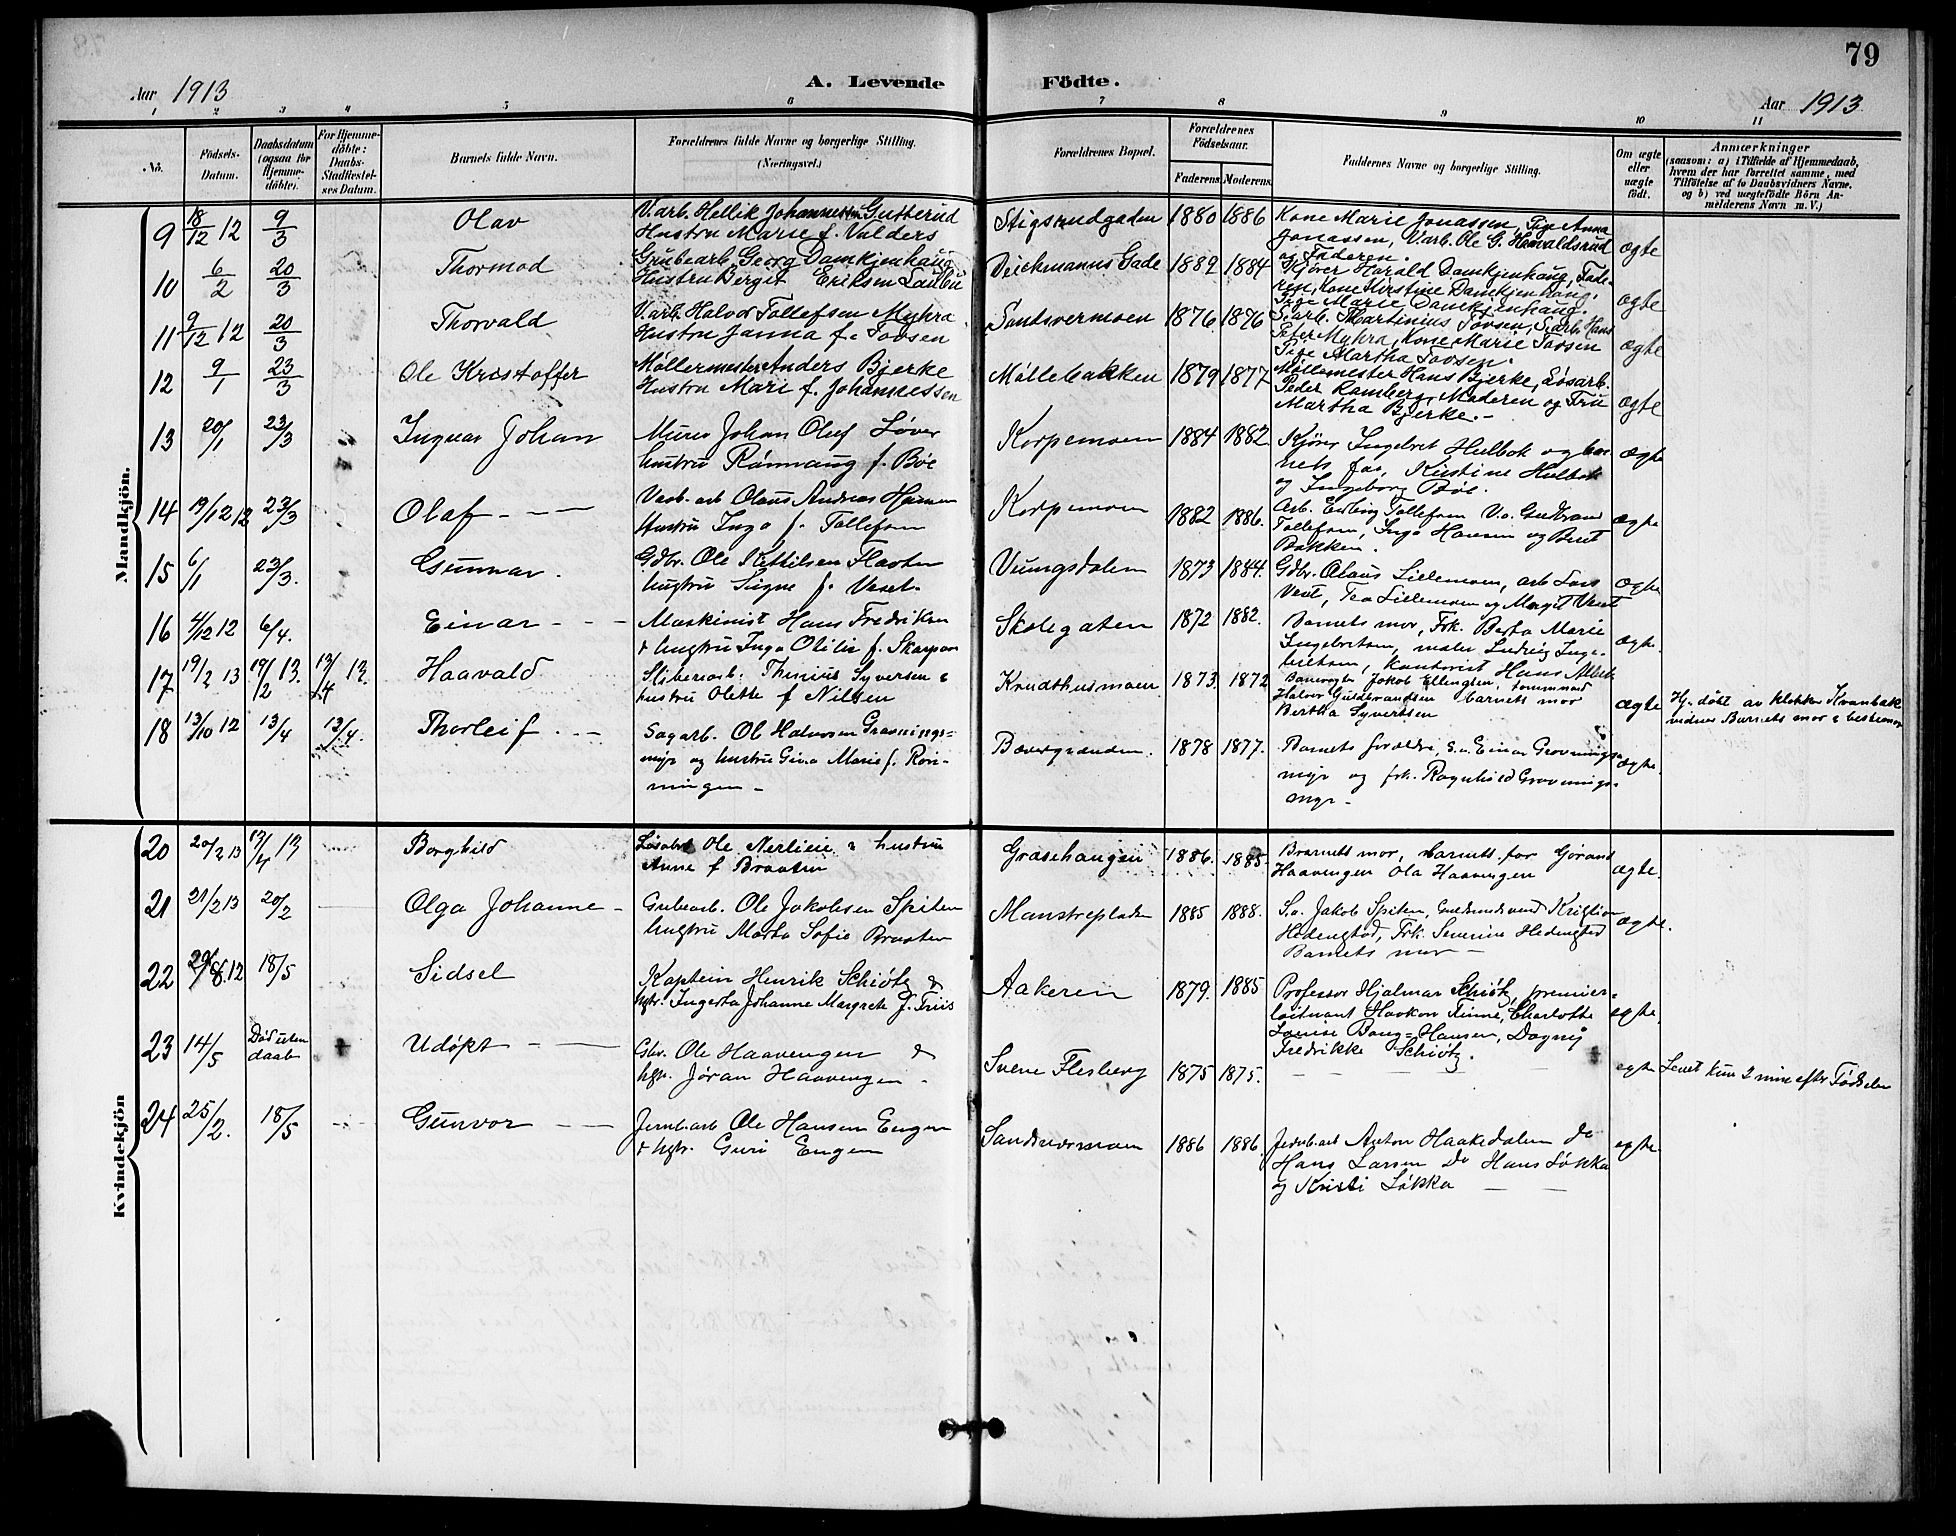 79
Aar 1913
A. Levende Födte.
Aar 1913
1 2 3 4 5 6 7 8 9 10 11
No.
Födsels-Datum.
Daabsdatum (ogsaa for Hjemmedöbte).
For Hjemmedöbte: Daabs-Stadfæstelses Datum.
Barnets fulde Navn.
Forældrenes fulde Navne og borgerlige Stilling.
(Næringsvei.)
Forældrenes Bopæl.
Forældrenes Födselsaar.
Faderens. Moderens.
Faddernes Navne og borgerlige Stilling.
Om ægte eller uægte födt.
Anmærkninger
(saasom: a) i Tilfælde af Hjemmedaab,
hvem der har forrettet samme, med
Tilföielse af to Daabsvidners Navne.
og b) ved uægtefödte Börn Anmelderens Navn m. V.)
Mandkjön.
9 18/12 12 9/3 Olav
V.arb. Hellik Johannessen Gutterud
Hustru Marie f. Valders
Stigsrudgaden 1880 1886
Kone Marie Jonassen, Pige Anna
Jonassen, V.arb. Ole G. Havaldsrud
og Faderen.
ægte
10 6/2 20/3 Thormod
Grubearb. Georg Damkjenhaug
Hustru Berget Eriksen
Deichmanns Gade 1889 1884
Kjører Harald Damkjenhaug, Fade-
ren, Kone Kirstine Damkjenhaug.
Pige Marie Damkjenhaug.
ægte
11 9/12 12 20/3 Thorvald
V.arb. Halvor Tollefsen Myhra
Hustru Janna f. Tovsen
Sandsvermoen 1876 1876
S.arb. Martinius Tovsen, S.arb. Hans
Peter Myhra, Kone Marie Tovsen
Pige Martha Tovsen.
ægte
12 9/1 23/3 Ole Kristoffer
Møllermester Anders Bjerke
Hustru Mari f. Johannessen
Møllebakken 1879 1877
Møllemester Hans Bjerke, Løsarb.
Peder Ramberg, Moderen og Fru
Martha Bjerke.-
ægte
13 20/1 23/3 Ingvar Johan
Murer Johan Oluf Løver
hustru Rønnaug f. Bøe
Korpemoen 1884 1882
Kjører Ingebret Hulbak og bar-
nets far, Kirstine Hulbak
og Ingeborg Bøe.
ægte
14 19/12 12 23/3 Olaf
Verb. arb Olaus Andreas Hansen
Hustru Inga f. Tollefsen
Korpemoen 1882 1886.
Arb. Erling Tollefsen V.a. Gudbrand
Tollefsen, Inga Hansen og Berit
Bakken.
ægte
15 6/1 23/3. Gunnar.
Gdbr. Ole Kittilsen
hustru Signe f.
Vungsdalen 1873 1884.
Gdbr. Olaus Lillemoen, arb Lars
Tea Lillemoen og Margit
ægte
16 4/12 12 6/4. Einar
Maskinist Hans Fredriksen
& hustru Inga Otilie f.
Skolegaten 1872 1882.
Barnets mor, Frk. Berta Marie
Ingebretsen, maler Ludvig Inge-
bretsen, kontorist Hans
ægte.
17 19/2 13 19/2 13. 13/4 13. Haavald
Sliberarb. Syversen &
hustru Olette f Nilsen
Krudthusmoen 1873. 1872
Banevogter Jakob Ellengsen,
Halvor Guldbrandsen barnets mor
Bertha Syvertsen
ægte
Hj. døbt av klokker Kvanbæk
vidner Barnets mor & bestemor
18 13/10 12 13/4 13/4. Thorleif
Sagarb. Ole Halvorsen Gravnings-
myr og hustru Gina Marie f. Røn-
ningen -
Bævergrænden. 1878 1877.
Barnets forældre, S.a. Einar Gravnings-
myr og frk. Ragnhild Gravnings-
myr -
ægte.
Kvindekjön
20 20/2 13 13/4 13 Borghild
Løsarb Ole Nerlien & hustru
Anne f Braaten
Græsehaugen 1886. 1885.
Barnets mor, barnets far Gjøran
Haavengen Ola Haavengen
ægte.
21 21/2 13 20/2 Olga Johanne
Grubearb. Ole Jakobsen Spiten
hustru Marta Sofie Braaten
1885 1888.
S.a. Jakob Spiten, Kristian
Hedengstad, Frk. Severine Hedengstad
Barnets mor
ægte.
22 29/8. 12 18/5 Sidsel
Kaptein Henrik Schiøtz &
hstr. Ingerta Johanne Margrete f. Friis
Aakeren 1879. 1885
Professor Hjalmar Schiøtz, premier-
løitnant Haakon Finne, Charlotte
Louise Bang-Hansen, Dagny
Fredrikke Schiøtz.
egte.
23 14/5 Død uten daab Udøpt
Gbr. Ole Haavengen &
hstr. Jøran Haavengen.
Svene Flesberg 1875 1875.
egte
Levet kun 2 min efter Fødselen
24 25/2. 18/5 Gunvor
Jernb.arb Ole Hansen Engen
& hstr. Guri Engen
Sandsvermoen 1886 1886.
Jernb.arb Anton Haakedalen do
Hans Larsen Do Hans Løkka
og Kristi Løkka
egte.